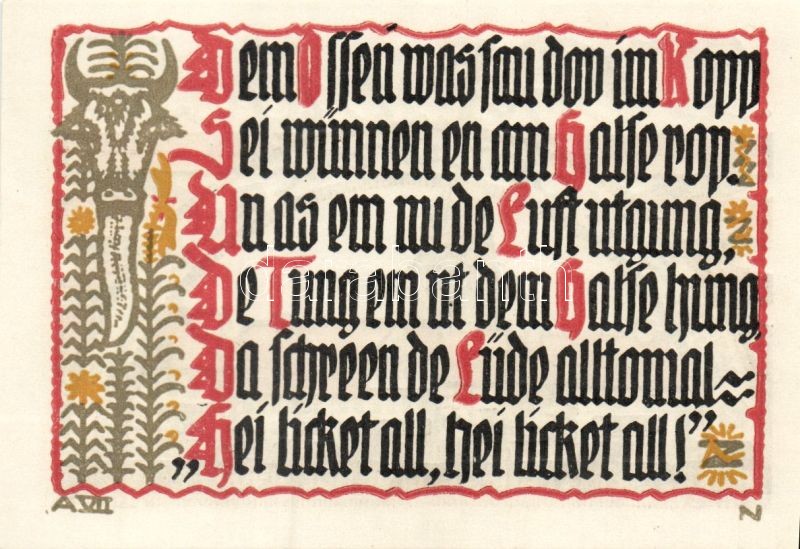 Dem Ossen was sau dov im Kopp
Sei wünnen en am Halse rop.
Un as em nu de Luft utgung,
De Tung em ut dem Halse hung,
Da schreen de Lüde alltomal
„Hei licket all, hei licket all!”
A VII
Z
darabanth